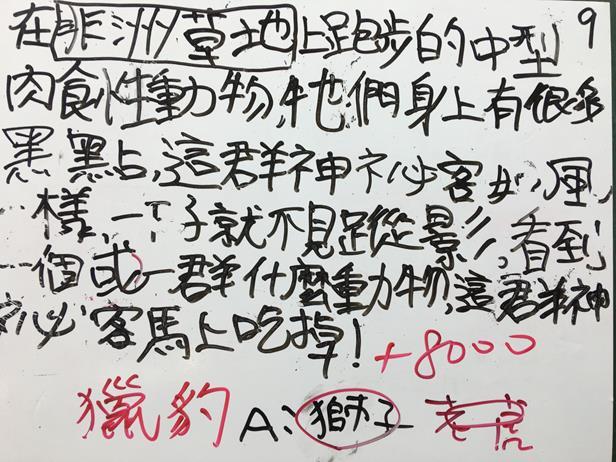 在非洲草地上跑步的中型 9
肉食性動物,牠們身上有很多
黑點点,這群神祕客如風
一樣,一下子就不見蹤影,看到
一個或一群什麼動物,這群神
祕客馬上吃掉! +8000
獵豹 A:獅子 老虎